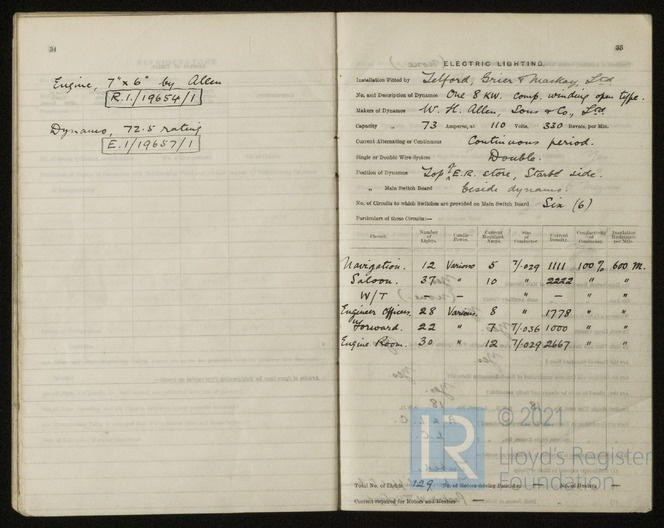 34
Engine, 7" x 6" by Allen
R.1./19654/1
Dynamo, 72.5 rating
E.1/19657/1
35
ELECTRIC LIGHTING.
Installation fitted by Telford, Grier & Mackay, Ltd
No. and Description of Dynamos One 8 KW. comp. winding open type.
Makers of Dynamos W. H. Allen, Sons & Co., Ltd.
Capacity „ 73 Amperes, at 110 Volts, 330 Revols. per Min.
Current Alternating or Continuous Continuous period.
Single or Double Wire System Double.
Position of Dynamos Top of E.R. store, Starbd side.
„ Main Switch Board beside dynamo.
No. of Circuits to which Switches are provided on Main Switch Board Six (6)
Particulars of these Circuits:—
Circuit. Number of Lights. Candle Power. Current Required Amps. Size of Conductor. Current Density. Conductivity of Conductor. Insulation Resistance per Mile.
Navigation. 12 Various 5 7/.029 1111 100% 600 M.
Saloon. 37 " 10 " 2222 " "
W/T — — " — " "
Engineer Officers 28 Various. 8 " 1778 " "
Forward. 22 " 7 7/.036 1000 " "
Engine Room. 30 " 12 7/.029 2667 " "
Total No. of Lights 129 No. of Motors driving Fans, &c. — No. of Heaters —
Current required for Motors and Heaters —
LR
© 2021
Lloyd's Register
Foundation